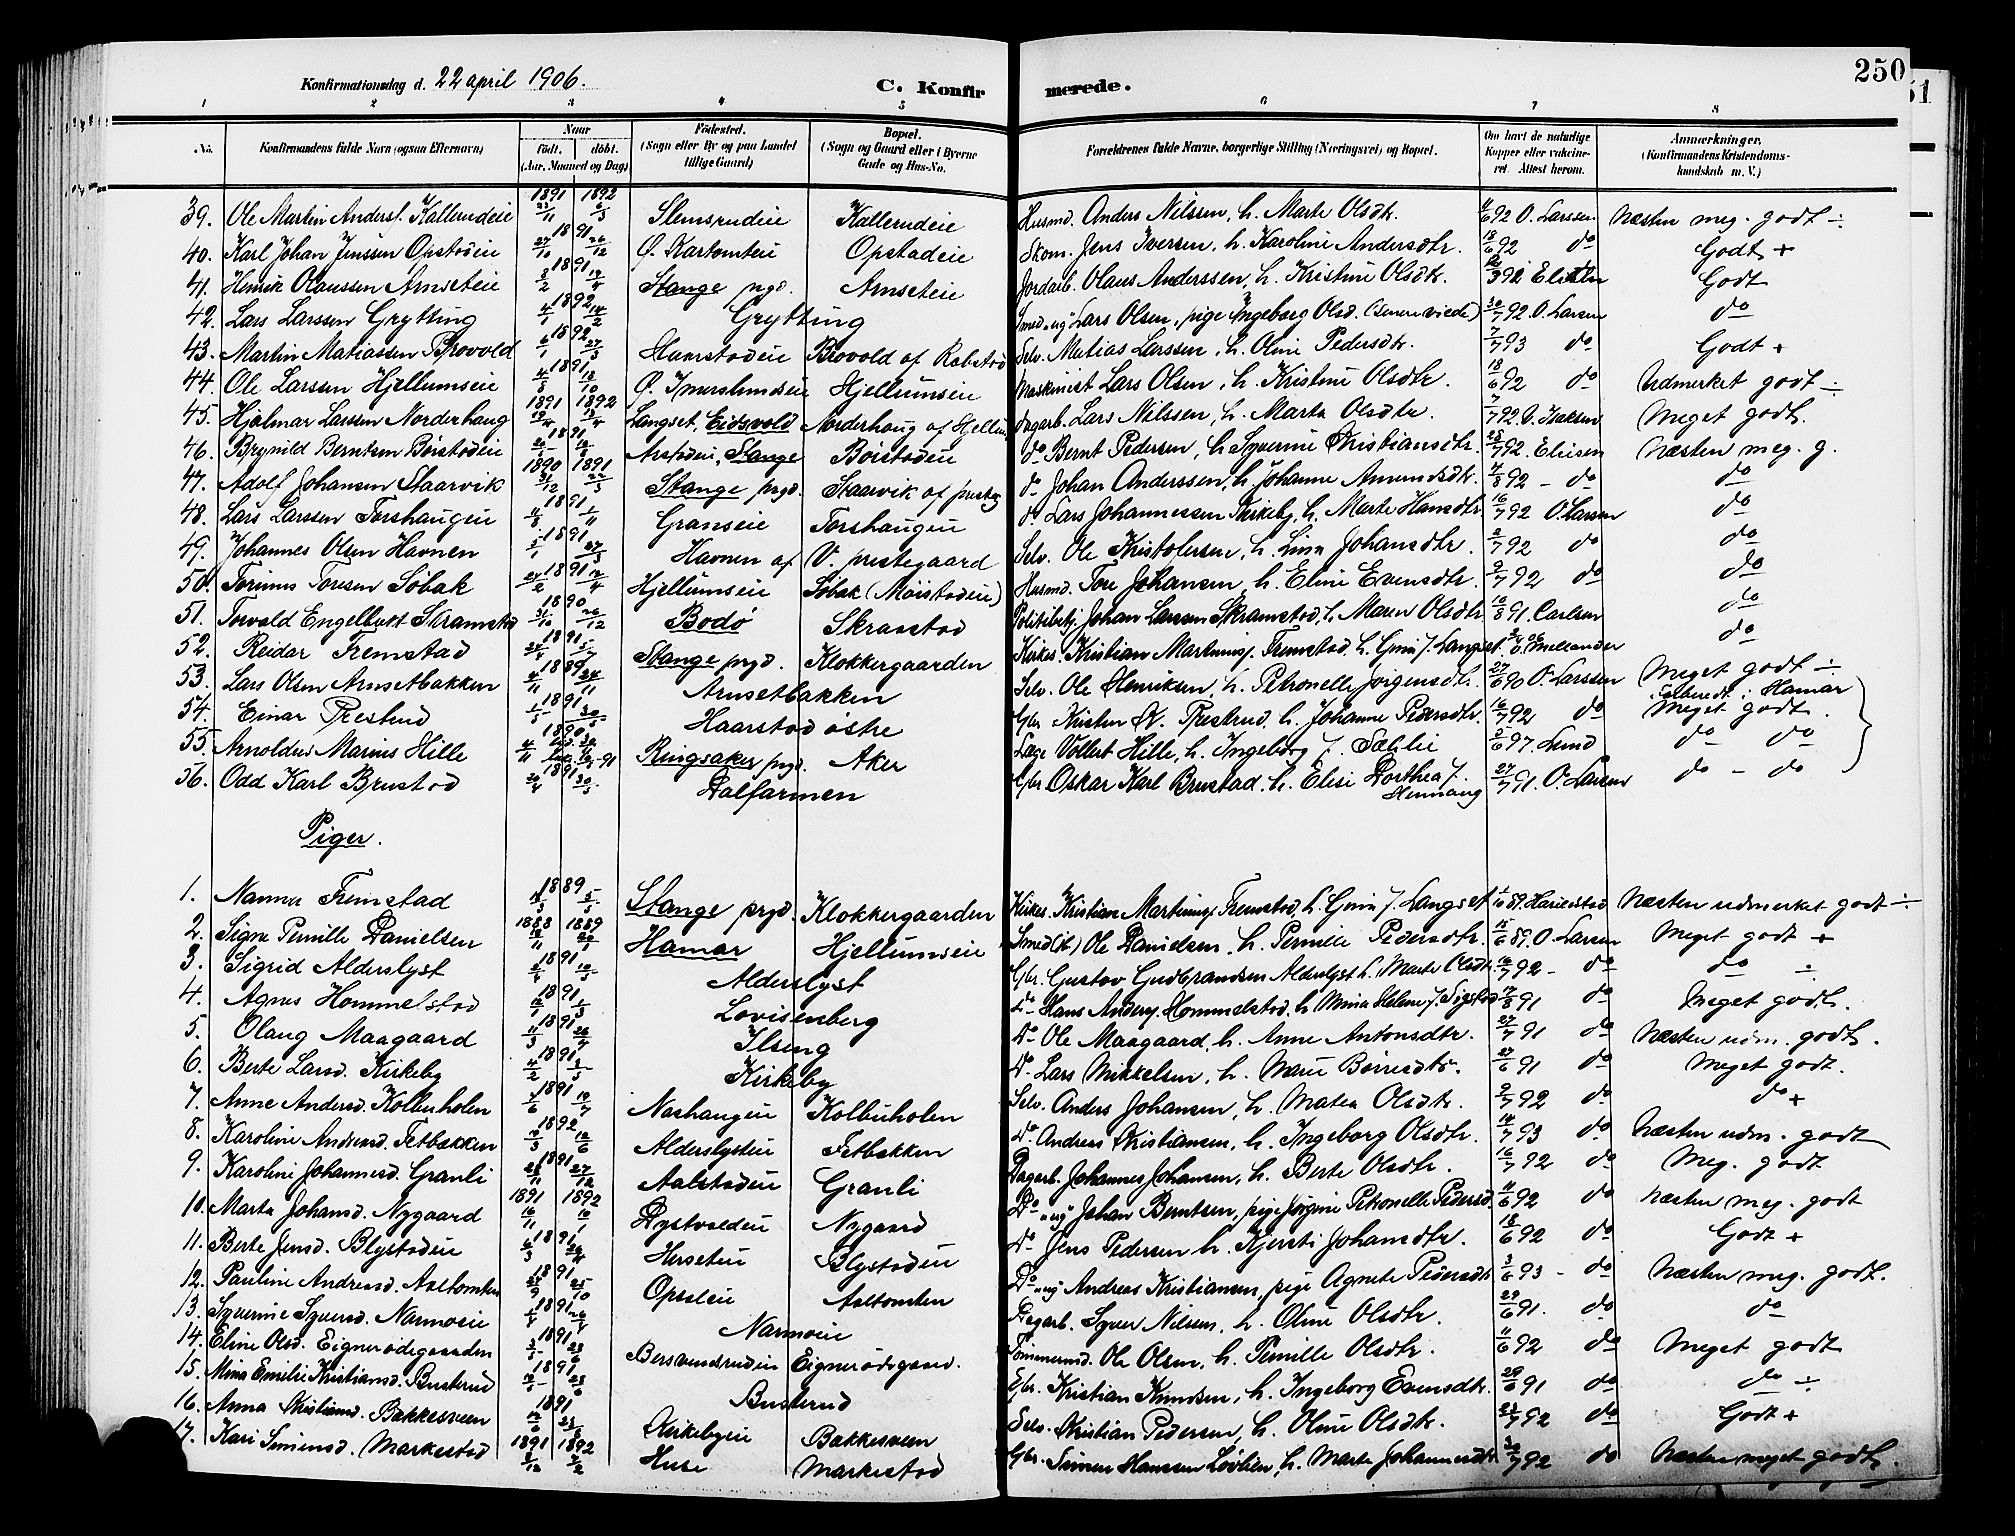 250
51
Konfirmationsdag d. 22 april 1906.
C. Konfirmerede.
1 2 3 4 5 6 7 8
No. Konfirmandens fulde Navn (ogsaa Efternavn) Naar født. døbt. (Aar, Maaned og Dag) Fødested. (Sogn eller By og paa Landet tillige Gaard) Bopæl. (Sogn og Gaard eller i Byerne Gade og Hus-No. Forældrenes fulde Navne, borgerlige Stilling (Næringsvei) og Bopæl. Om havt de naturlige Kopper eller vakcineret. Attest herom. Anmærkninger. (Konfirmandens Kristendomskundskab m. V.)
39. Ole Martin Anders. Kallerudeie 1891 23/11 1892 6/3 Slemsrudeie Kallerudeie Husmd. Anders Nilssen, h. Marte Olsdtr. 92 O. Larssen Næsten meg. godt ÷
40. Karl Johan Jenssen Opstadeie 1891 27/10 26/12 Ø. Kartomteie Opstadeie Skom. Jens Iversen, h. Karoline Andersdtr. 18/6 92 do Godt +
41. Henrik Olaussen Arnseteie 1891 8/2 Stange pgd. Arnseteie Jordarb. Olaus Anderssen, h. Kristine Olsdtr. 92 Godt
42. Lars Larssen Grytting 1892 4/1 14/2 Grytting Smed, ug. Lars Olsen, pige Ingeborg Olsd. (senere viede) 30/7 92. O. Larsen do
43. Martin Matiassen Brovold 1892 6/1 27/3 Hamstadeie Brovold af Rabstad Selv. Matias Larssen, h. Oline Pedersdtr. 7/7 93 do Godt +
44. Ole Larssen Hjellumseie 1891 4/8 18/10 Ø. Imerslundeie Hjellumseie Maskinist Lars Olsen, h. Kristine Olsdtr. 18/6 92 do Udmerket godt ÷
45. Hjalmar Larssen Norderhaug 1891 1892 Langset, Eidsvold Norderhaug af Hjellum Dagarb. Lars Nilssen, h. Marta Olsdtr. 7/7 92. O. Isaksen Meget godt.
46. Brynild Berntsen Børstadeie 1891 Arstadeie, Stange Børstadeie do Bernt Pedersen, h. Syverine Kristiansdtr. 25/7 92. Eliesen Næsten meg. g.
47. Adolf Johansen Staarvik 1890 31/12 1891 Stange pgd. Staarvik af do Johan Anderssen, h. Johanne Amundsdtr. 4/8 92 - do do
48. Lars Larssen Torshaugen 1891 11/8 1/11 Granseie Torshaugen do Lars Johannessen Kirkeby, h. Marte Hansdtr 16/7 92 O. Larssen do
49. Johannes Olsen Havnen 1891 5/1 27/3 Havnen af V. prestegaard Selv. Ole Kristofersen, h. Lina Johansdtr. 2/7 92 do do
50. Torinus Toresen Sobak 1891 24/2 12/4 Hjellumseie Sobak (Moistadeie) Husmd. Tore Johansen, h. Eline Evensdtr. 2/7 92 do do
51. Torvald Engelbert Skramstad 1890 31/10 26/12 Bodø Skramstad Politibetj. Johan Larssen Skramstad, h. Maren Olsdtr 16/8 91. Carlsen do
52. Reidar Fremstad 1891 24/4 5/7 Stange pgd. Klokkergaarden Kirkes. Kristian Martinius f. Fremstad, h. Gina f. Langset do
53. Lars Olsen Arnsetbakken 1889 4/11 24/11 Arnsetbakken Selv. Ole Henriksen, h. Petronelle Jørgensdtr. 27/6 90 O. Larssen Meget godt ÷
54. Einar Prestrud 1891 1/5 30/5 Haarstad østre Gbr. Kristen O. Prestrud, h. Johanne Pedersdtr. 16/7 92 do Meget godt. Hamar
55. Arnoldus Marius Hille 1890 4/11 91 Ringsaker pgd. Aker Læge Vollert Hille, h. Ingeborg f. Sæhlie 5/6 97. Lund do do
56. Odd Karl Brustad 1891 20/4 30/5 Dalfarmen Gbr. Oskar Karl Brustad, h. Elise Dorthea f. Hennang 27/7 91. O. Larsen do - do
Piger.
1. Nanna Fremstad 1889 5/5 Stange pgd. Klokkergaarden Kirkes. Kristian Martinius f. Fremstad, h. Gina f. Langset 89. Harildstad Næsten udmerket godt ÷
2. Signe Pernille Danielsen 1888 1889 Hamar Hjellumseie Smed Ole Danielsen, h. Pernille Pedersdtr. 89. O. Larsen Meget godt +
3. Sigrid Alderslyst 1891 Alderslyst Gbr. Gustav Gudbrandsen Alderslyst h. Marte Olsdtr. 16/7 92 - do do ÷
4. Agnes Hommelstad 1891 Lovisenberg Do Hans Anders. Hommelstad, h. Mina Helene f. Sigstad 17/8 91 do Meget godt.
5. Olaug Maagaard 1891 Ilseng Do Ole Maagaard, h. Anne Antonsdtr. 27/7 91 do Næsten udm. godt.
6. Berte Larsd. Kirkeby 1891 4/2 Kirkeby Do Lars Mikkelsen, h. Marie Børresdtr. 27/6 91 do Meget godt.
7. Anne Andersd. Kolbuholen 1891 19/7 Nashaugen Kolbuholen Selv. Anders Johansen, h. Matea Olsdtr. 2/7 92 do do +
8. Karoline Andreasd. Fetbakken 1892 Alderslysteie Fetbakken Do Andreas Kristiansen, h. Ingeborg Olsdtr. 93 do Næsten udm. godt
9. Karoline Johannesd. Granli 1891 27/12 Aalstadeie Granli Dagarb. Johannes Johansen, h. Berte Olsdtr. 16/7 92 do Meg. godt
10. Marta Johansd. Nygaard 1891 16/11 1892 Dystvoldeie Nygaard Do ug. Johan Berntsen, pige Jørgine Petronelle Pedersd. 11/6 92 do Næsten meg. godt
11. Berte Jensd. Blystadeie 1891 Herseteie Blystadeie Do Jens Pedersen h. Kjersti Johansdtr. 18/6 92 do Godt +
12. Pauline Andreasd. Aaltomten 1891 25/10 Opsaleie Aaltomten Do ug. Andreas Kristiansen, pige Agnete Pedersdtr 3/6 93 - do Næsten meg. godt.
13. Syverine Syversd. Narmoeie 1891 Narmoeie Dagarb. Syver Nilsen, h. Oline Olsdtr. 29/6 91. do do
14. Eline Olsd. Eignerødegaarden 1891 Bersvendsrudeie Eignerødegaard. Tømmermd. Ole Olsen, h. Pernille Olsdtr. 11/6 92 do Meget godt
15. Mina Emilie Kristiansd. Busterud 1891 Busterud Gbr. Kristian Knudsen, h. Ingeborg Evensdtr. 29/6 91 do do ÷
16. Anna Kristiansd. Bakkesveen 1891 Kirkebyeie Bakkesveen Selv. Kristian Pedersen, h. Oline Olsdtr. 23/7 92 do Godt +
17. Kari Simensd. Markestad 1891 1892 Huse Markestad Gbr. Simen Hanssen Løvlien, h. Marte Johannesdtr. 30/7 92 do Næsten meget godt.